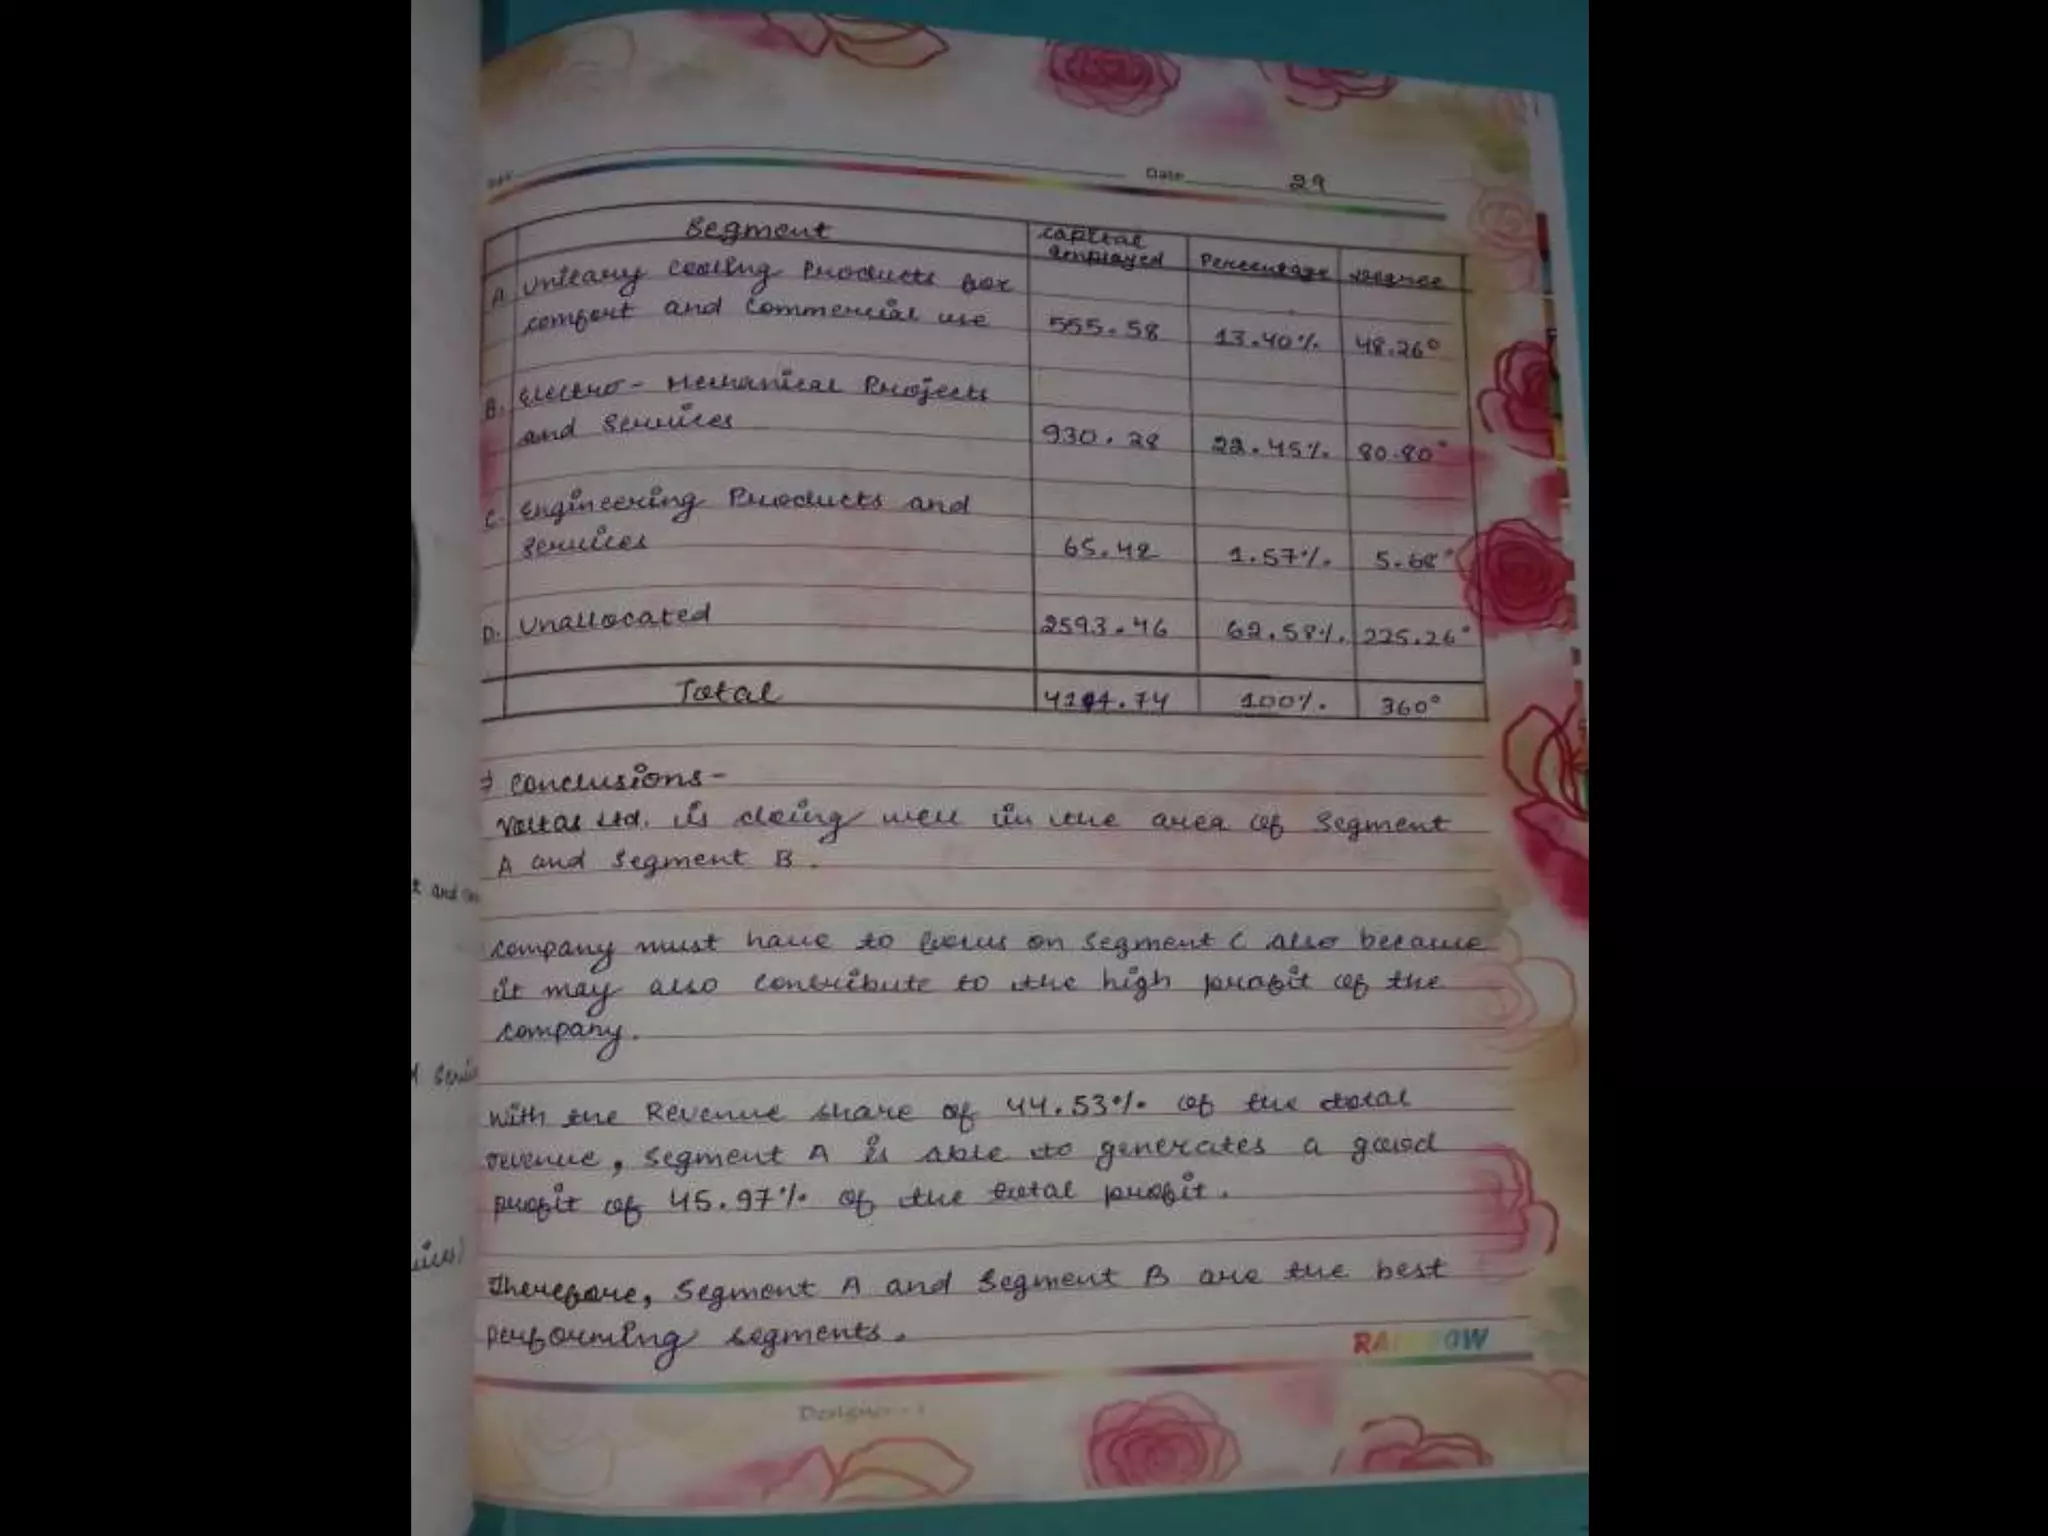 Date 29
Segment Capital employed Percentage Degree
A. Unitary Cooling Products for
comfort and Commercial use 555.58 13.40% 48.26°
B. Electro-Mechanical Projects
and Services 930.28 22.45% 80.80°
C. Engineering Products and
Services 65.42 1.57% 5.68°
D. Unallocated 2593.46 62.58% 225.26°
Total 4144.74 100% 360°
Conclusions-
Voltas Ltd. is doing well in the area of Segment
A and Segment B.
company must have to focus on Segment C also because
it may also contribute to the high profit of the
company.
With the Revenue share of 44.53% of the total
revenue, Segment A is able to generates a good
profit of 45.97% of the total profit.
Therefore, Segment A and Segment B are the best
performing segments.
RAINBOW
Designer - 1